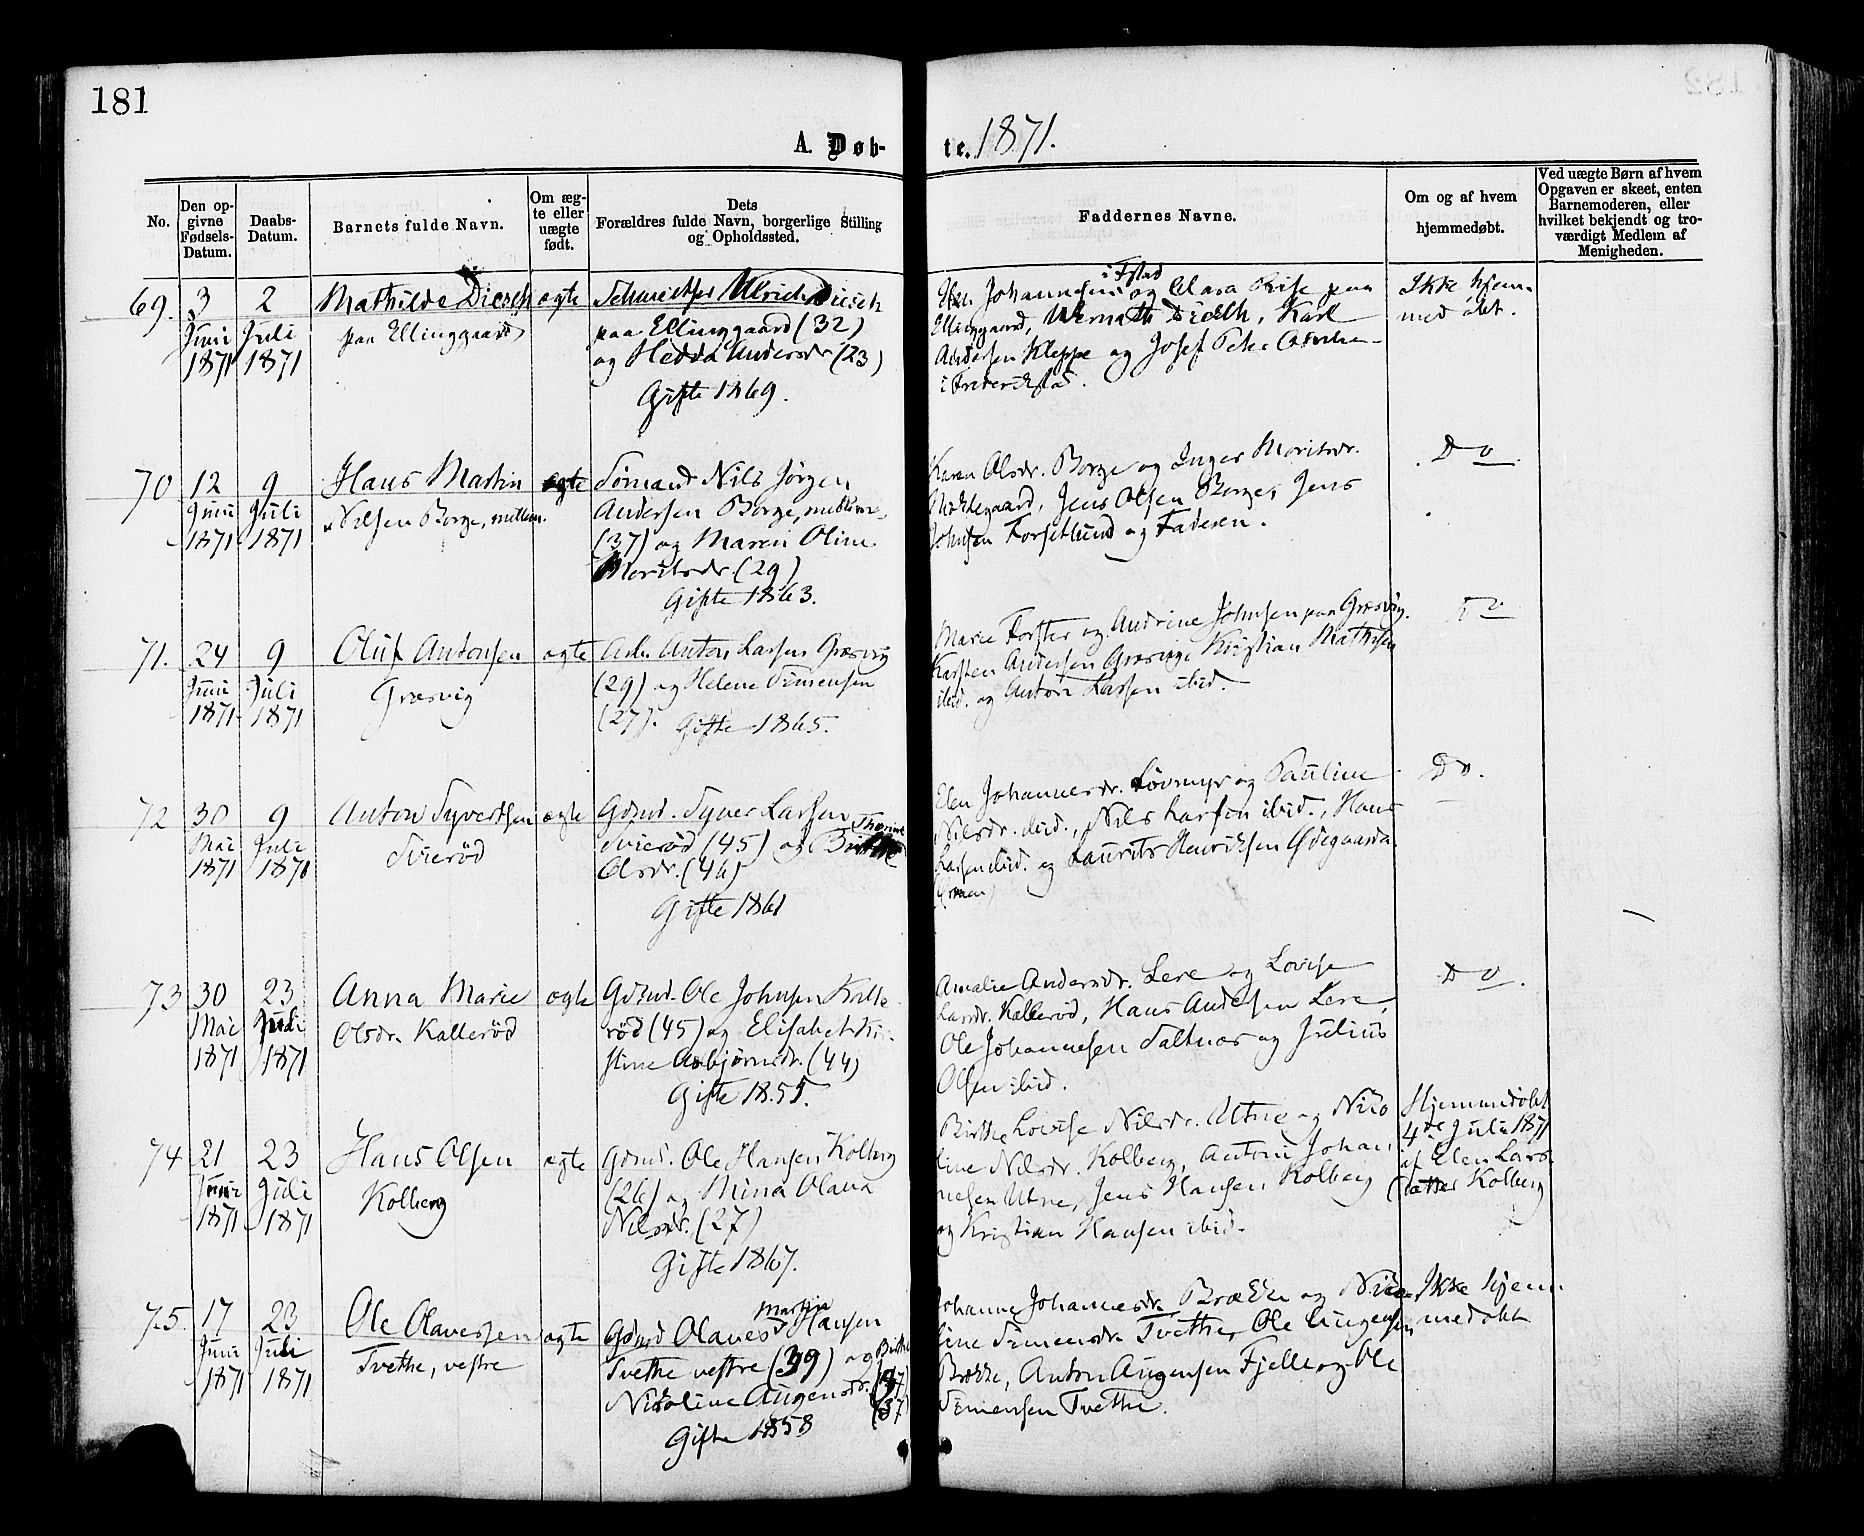 181
A. Døb-
te. 1871.
No.
Den op-
givne
Fødsels-
Datum.
Daabs-
Datum.
Barnets fulde Navn.
Om æg-
te eller
uægte
født.
Dets
Forældres fulde Navn, borgerlige Stilling
og Opholdssted.
Faddernes Navne.
Om og af hvem
hjemmedøbt.
Ved uægte Børn af hvem
Opgaven er skeet, enten
Barnemoderen, eller
hvilket bekjendt og tro-
værdigt Medlem af
Menigheden.
69.
3
Juni
1871
2
Juli
1871
Mathilde Diesch
paa Ellinggaard
ægte
Ulrich Diesch
paa Ellinggaard (32)
og Hedda Andersdr (23)
Gifte 1869.
Johannesen og Clara Riise paa
i Fstad
Ellinggaard, Karl
Andersen Kleppe og Josef
i Frederikstad.
Ikke hjem-
medøbt.
70
12
Juni
1871
9
Juli
1871
Hans Martin
Nilsen Borge, mellem.
ægte
Sømand Nils Jørgen
Andersen Borge, mellem-
(37) og Maren Oline
Moritsdr. (29)
Gifte 1863.
Karen Olsdr. Borge og Inger Moritsdr.
Jens Olsen Borge, Jens
Johnsen Forsetlund og Faderen.
Do
71.
24
Juni
1871
9
Juli
1871
Oluf Antonsen
Græsvig
ægte
Arbr Anton Larsen Græsvig
(29) og Helene Simensen
(27). Gifte 1865.
Marie Forster og Andrine Johnsen paa Græsvig.
Karsten Andersen Græsvig, Kristian Mathisen
ibid. og Anton Larsen ibid.
Do
72
30
Mai
1871
9
Juli
1871
Anton Syvertsen
Svierød
ægte
Gdmd. Syver Larsen
Svierød (45) og
Thorine
Olsdr. (46)
Gifte 1861
Elen Johannesdr. Løvmyr og Pauline
Nilsdr. ibid., Nils Larsen ibid., Hans
Larsen ibid. og Laurits Henriksen Ødegaard
Do.
73
30
Mai
1871
23
Juli
1871
Anna Marie
Olsdr. Kallerød
ægte
Gdmd. Ole Johnsen Kalle-
rød (45) og Elisabet Kri-
stine Asbjørnsdr. (44)
Gifte 1855.
Amalie Andersdr. Lere og Lovise
Larsdr. Kallerød, Hans Andersen Lere,
Ole Johannesen Saltnes og Julius
Olsen ibid.
Do.
74
21
Juni
1871
23
Juli
1871
Hans Olsen
Kolberg
ægte
Gdmd. Ole Hansen Kolberg
(26) og Mina Olava
Nilsdr. (27)
Gifte 1867.
Birthe Lovise Nilsdr. Utne og Niko-
line Nilsdr. Kolberg, Anton Johan-
nesen Utne, Jens Hansen Kolberg
og Kristian Hansen ibid.
Hjemmedøbt
4de Juli 1871
af Elen Lars-
datter Kolberg
75.
17
Juni
1871
23
Juli
1871
Ole Olavessen
Tvethe, vestre
ægte
Martin
Gdmd Olaves Hansen
Tvethe vestre (39) og Birthe
Nikoline Augensdr. (37)
(37)
Gifte 1858
Johanne Johannesdr. Brække og Niko-
line Simensdr. Tvethe, Ole Augensen
Brække, Anton Augensen Fjelle og Ole
Simensen Tvethe.
Ikke hjem-
medøbt